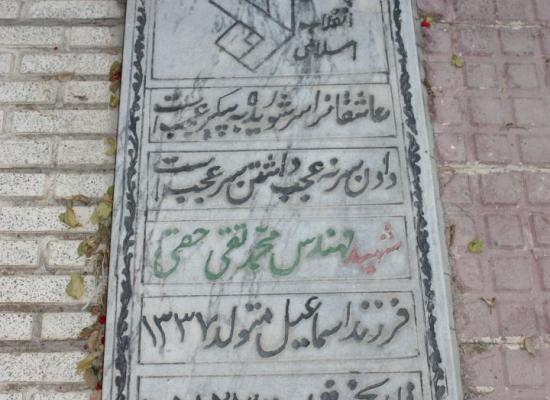 انقلاب
اسلامی
عاشقانرا سر شوریده به پیکر عجب است
دادن سر نه عجب داشتن سر عجب است
شهید مهندس محمد تقی حقی
فرزند اسماعیل متولد ۱۳۳۷